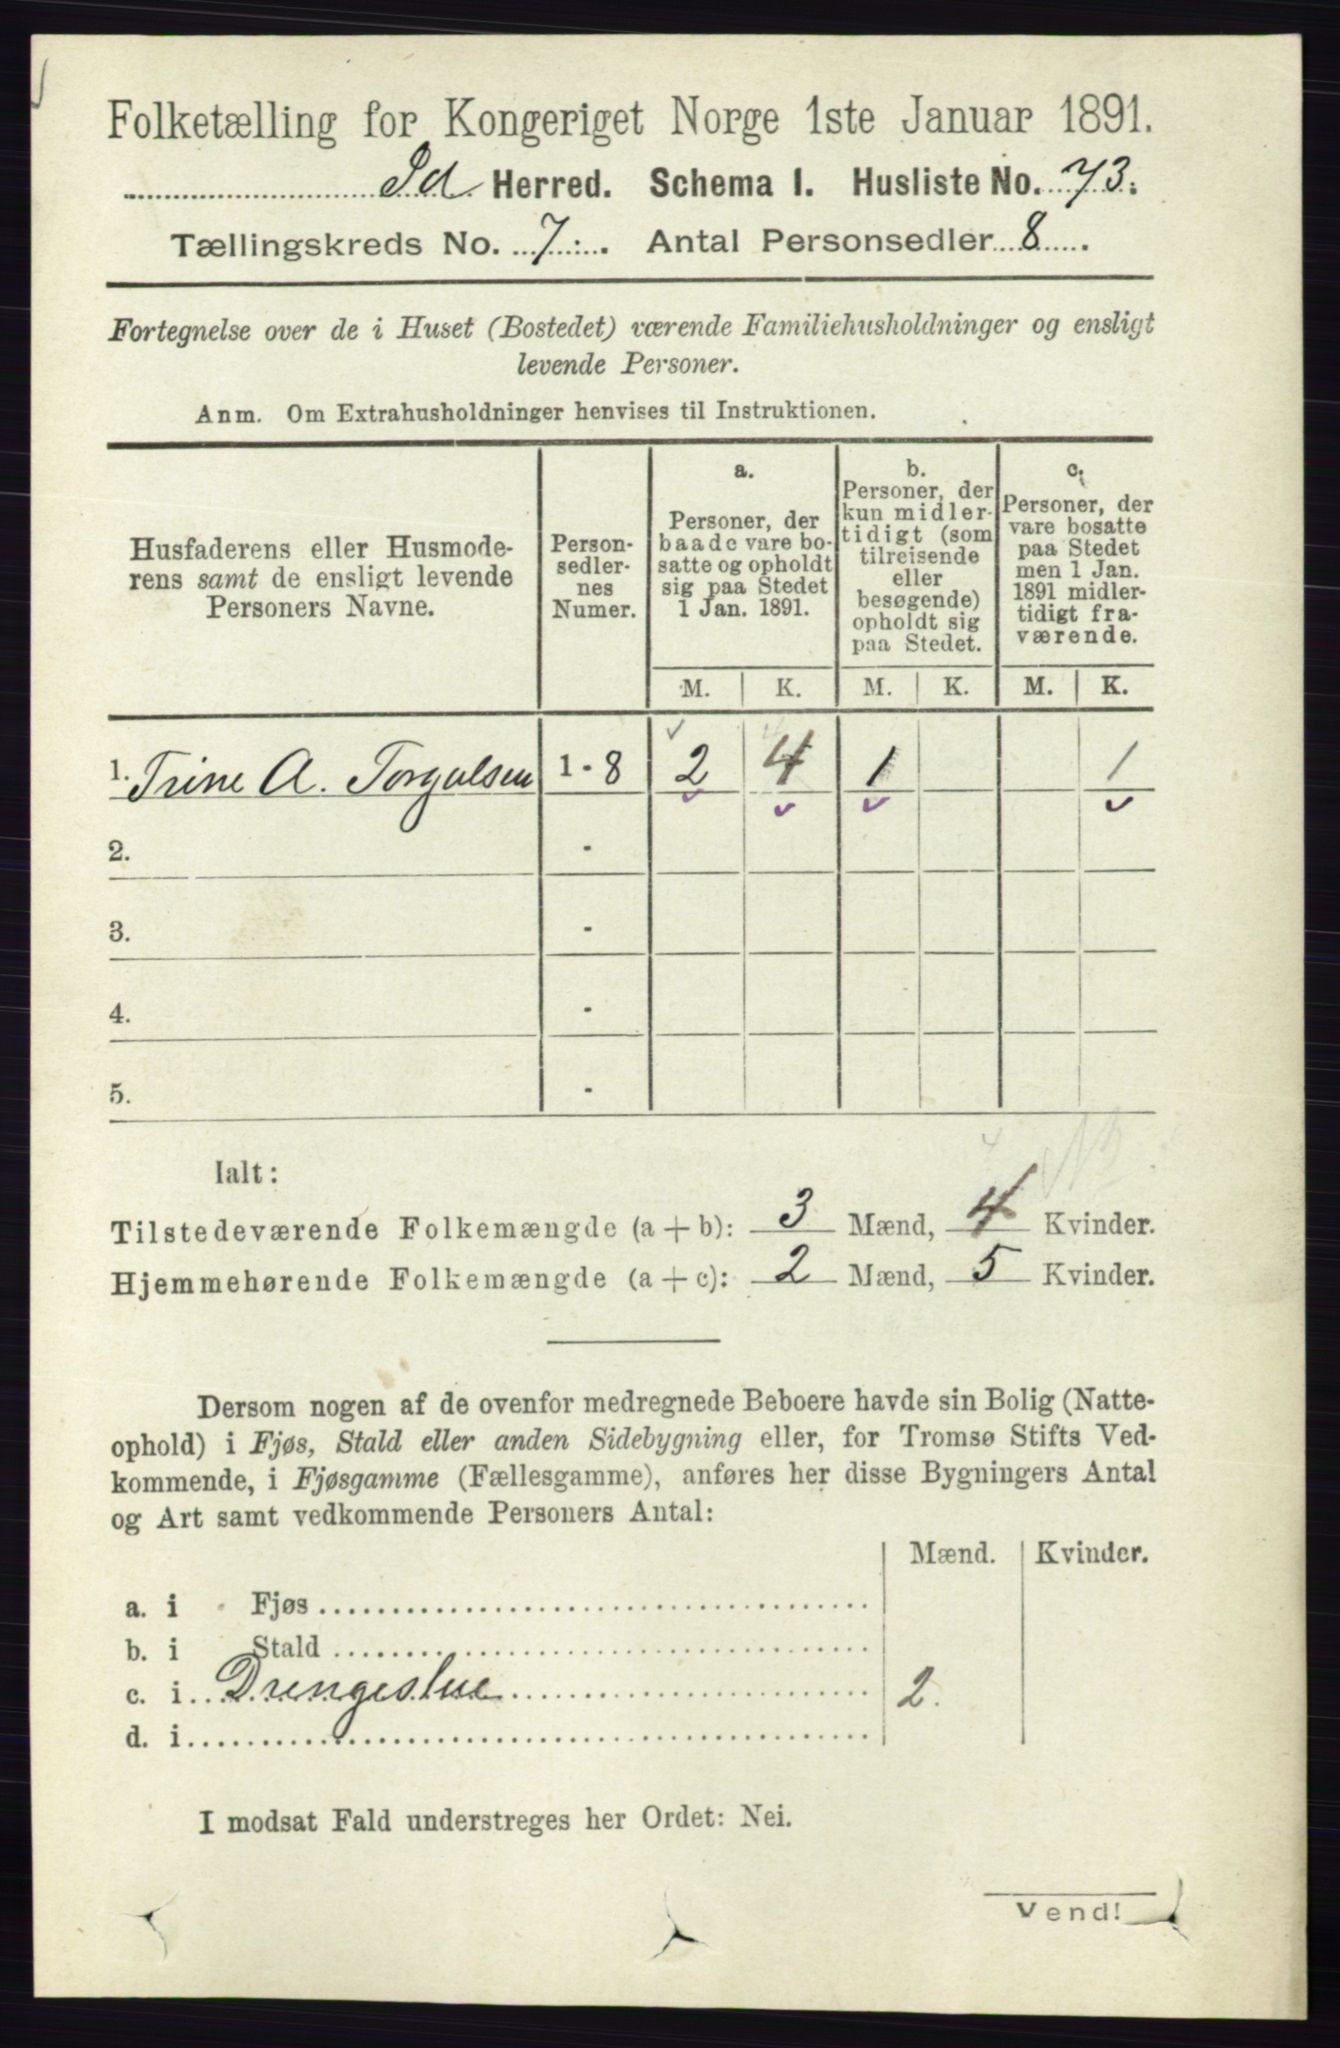 Folketælling for Kongeriget Norge 1ste Januar 1891.
Id Herred. Schema I. Husliste No. 73.
Tællingskreds No. 7. Antal Personsedler 8.
Fortegnelse over de i Huset (Bostedet) værende Familiehusholdninger og ensligt
levende Personer.
Anm. Om Extrahusholdninger henvises til Instruktionen.
Husfaderens eller Husmode-
rens samt de ensligt levende
Personers Navne.
Person-
sedler-
nes
Numer.
a.
Personer, der
baade vare bo-
satte og opholdt
sig paa Stedet
1 Jan. 1891.
b.
Personer, der
kun midler-
tidigt (som
tilreisende
eller
besøgende)
opholdt sig
paa Stedet.
c.
Personer, der
vare bosatte
paa Stedet
men 1 Jan.
1891 midler-
tidigt fra-
værende.
M. K. M. K. M. K.
1. Trine A. Torgulsen 1 - 8 2 4 1 1
2. -
3. -
4. -
5. -
Ialt:
Tilstedeværende Folkemængde (a + b): 3 Mænd, 4 Kvinder.
Hjemmehørende Folkemængde (a + c): 2 Mænd, 5 Kvinder.
Dersom nogen af de ovenfor medregnede Beboere havde sin Bolig (Natte-
ophold) i Fjøs, Stald eller anden Sidebygning eller, for Tromsø Stifts Ved-
kommende, i Fjøsgamme (Fællesgamme), anføres her disse Bygningers Antal
og Art samt vedkommende Personers Antal:
Mænd. Kvinder.
a. i Fjøs
b. i Stald
c. i Drengestue 2.
d. i
I modsat Fald understreges her Ordet: Nei.
Vend!